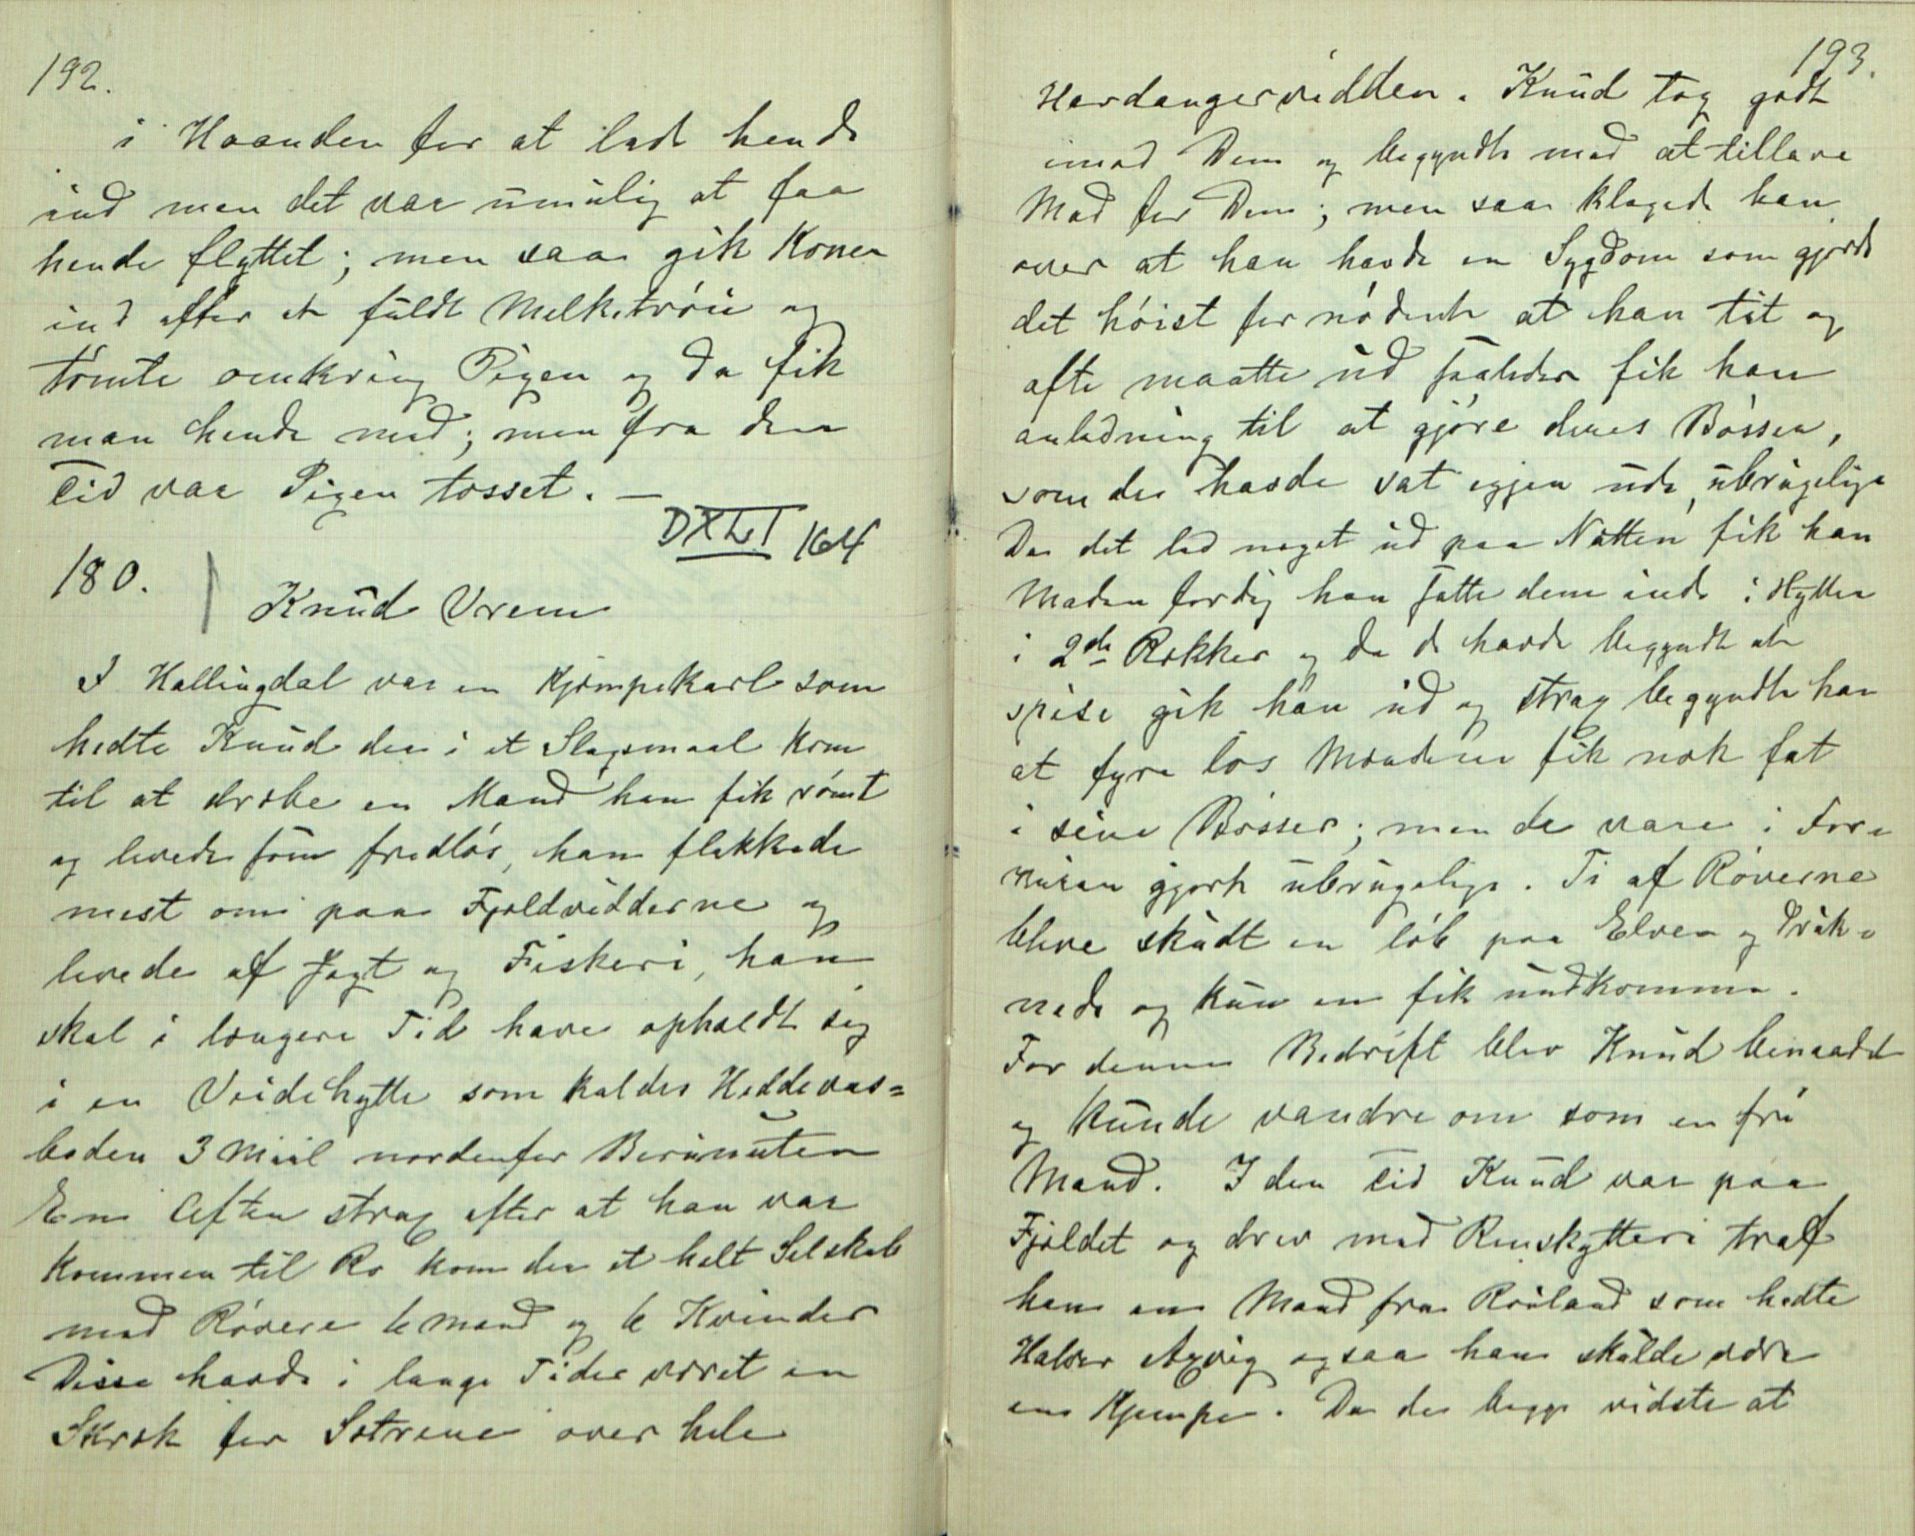 192.
i Haanden for at lede hende
ind men det var umulig at faa
hende flyttet; men saa gik Konen
ind efter et fuldt Melketrøie og
tømte omkring Pigen og da fik
man hende med; men fra den
Tid var Pigen tosset. —
DXLI 164
180.
Knud Vrem
I Hallingdal var en Kjæmpekarl som
hedte Knud der i et Slagsmaal kom
til at dræbe en Mand han fik rømt
og levede som fredløs, han flakkede
mest om paa Fjeldvidderne og
levede af Jagt og Fiskeri, han
skal i længere Tid have opholdt sig
i en Veidehytte som kaldes Heddevas=
boden 3 Miil nordenfor Berunuten
En Aften strax efter at han var
kommen til Ro kom der et helt Selskab
med Røvere 6 mand og 6 Kvinder
Disse havde i lange Tider været en
Skræk for Sætrene over hele
193.
Hardangervidden. Knud tog godt
imod Dem og begyndte med at tillave
Mad for Dem; men saa klagede han
over at han havde en Sygdom som gjorde
det høist fornødent at han tit og
ofte maatte ud saaledes fik han
anledning til at gjøre deres Bøsser,
som der havde sat igjen ude, ubrugelige
Da det led noget ud paa Natten fik han
Maden færdig han satte dem inde i Hytten
i 2de Rækker og da de havde begyndt at
spise gik han ud og strax begyndte han
at fyre løs Mændene fik nok fat
i sine Bøsser; men de vare i For-
veien gjort ubrugelige. Ti af Røverne
bleve skudt en løb paa Elven og druk-
nede og kun en fik undkomme.
For denne Bedrift blev Knud benaadet
og kunde vandre om som en fri
Mand. I den Tid Knud var paa
Fjeldet og drev med Renskytteri traf
han en Mand fra Rauland som hedte
Halvor Aavig ogsaa han skulde være
en Kjæmpe. Da de begge vidste at